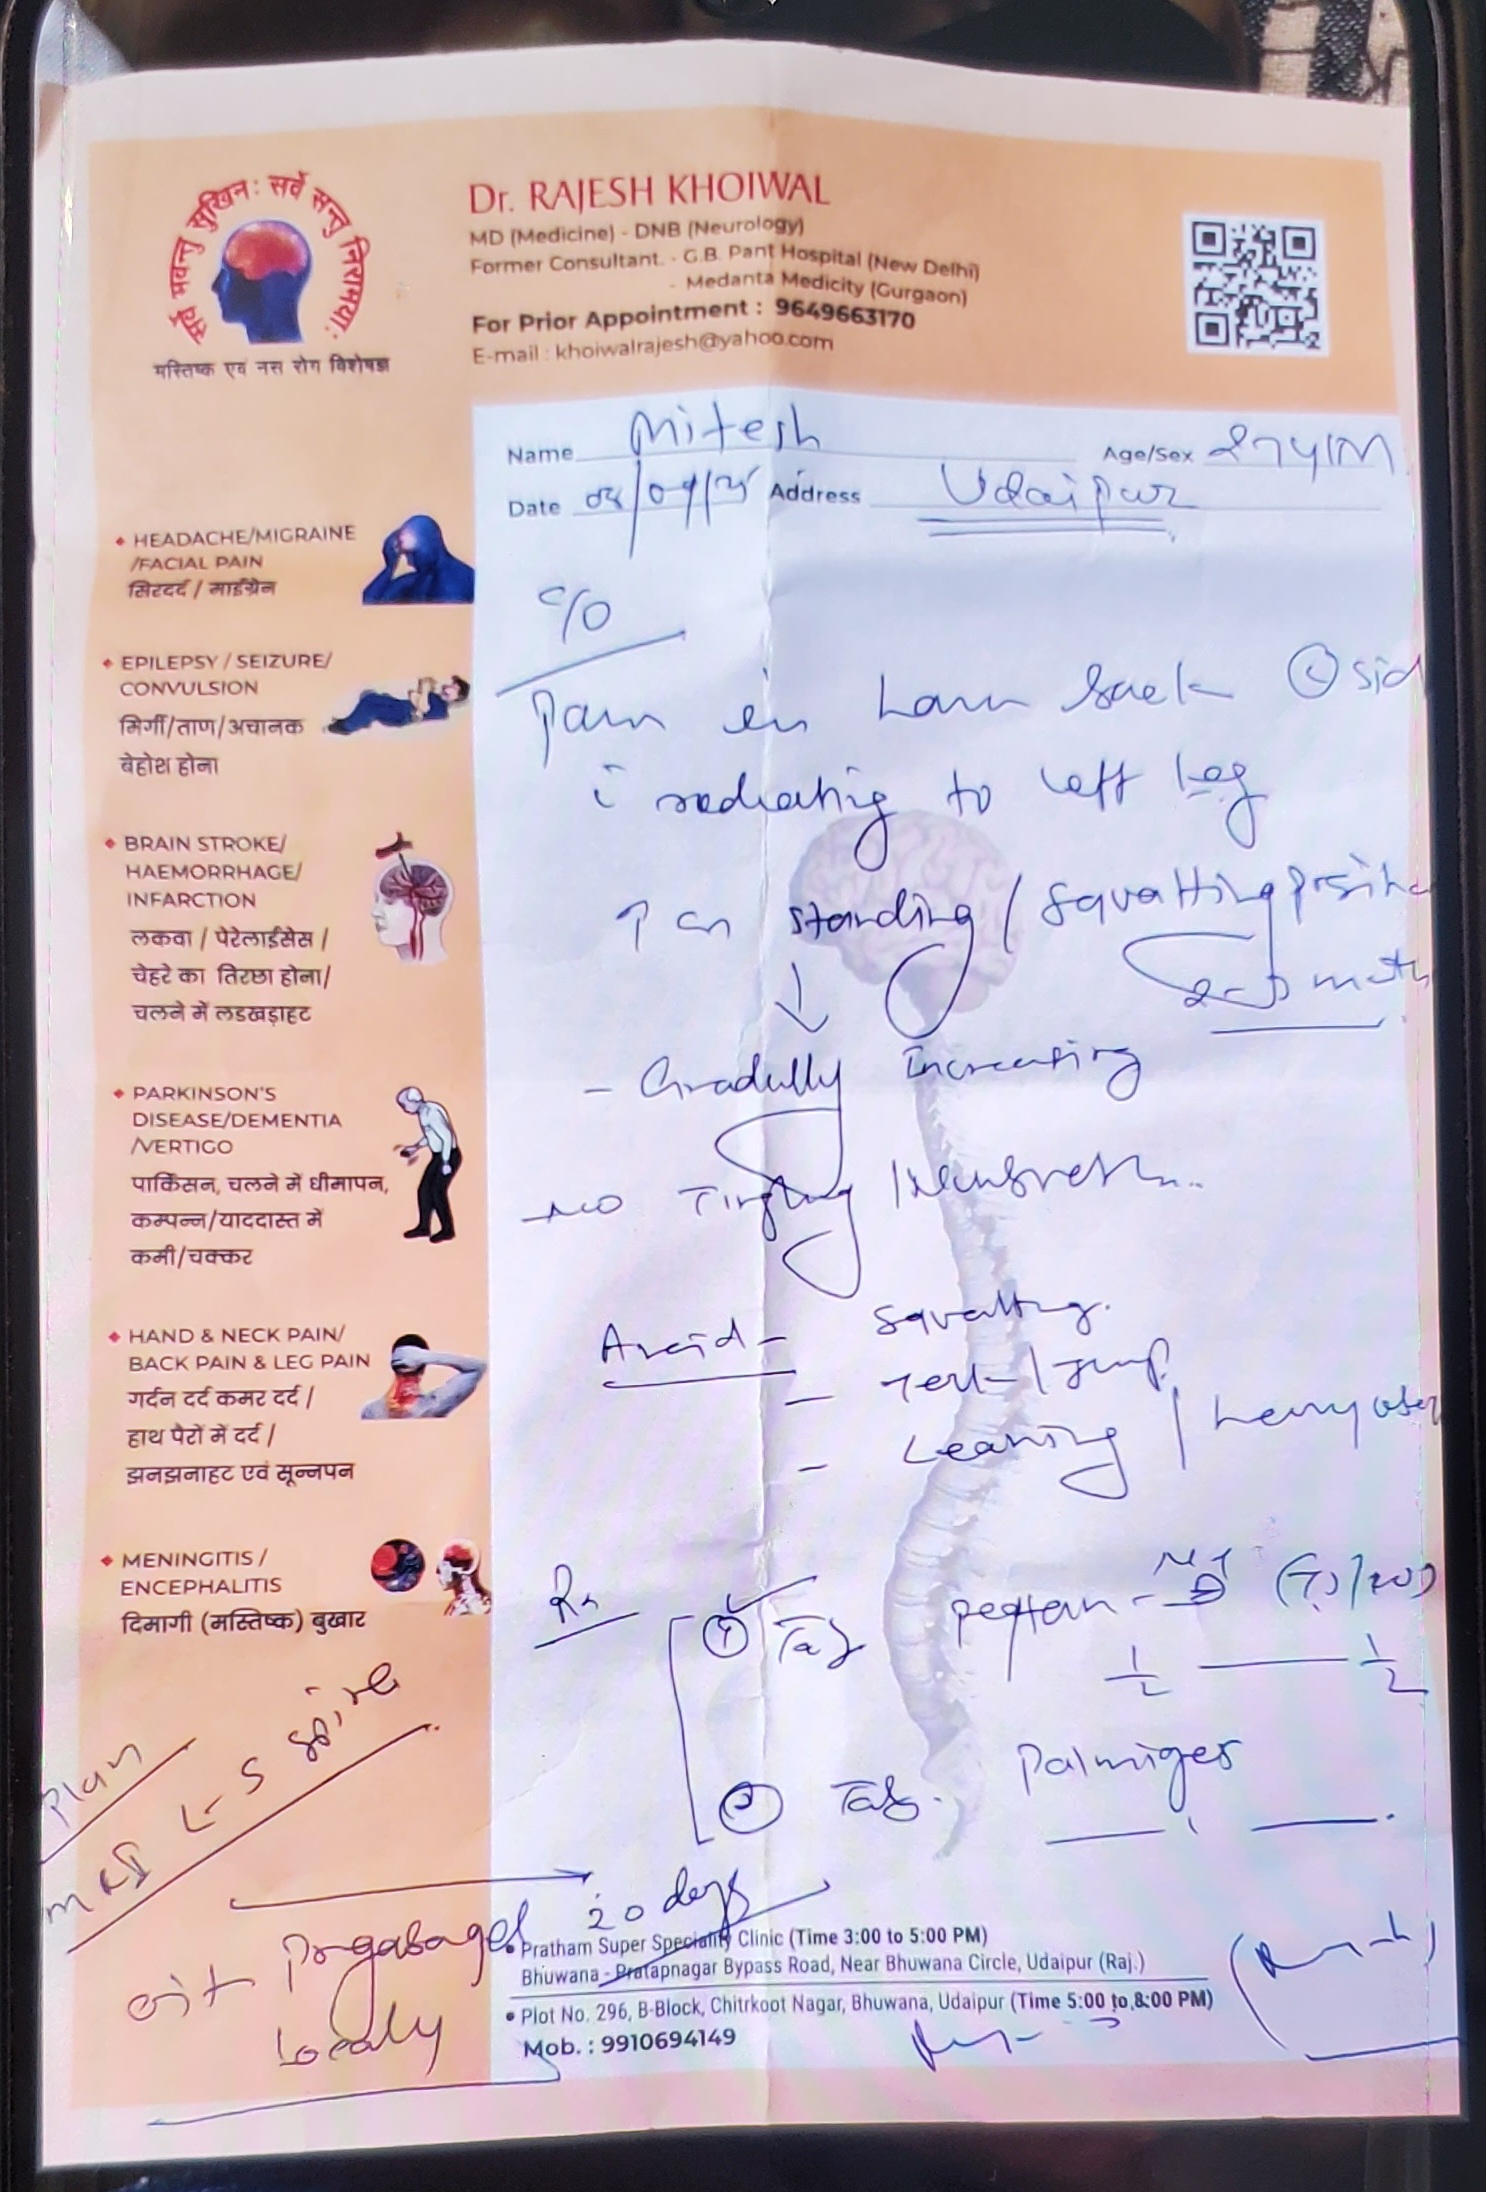 सर्वे भवन्तु सुखिनः सर्वे सन्तु निरामयाः
मस्तिष्क एवं नस रोग विशेषज्ञ
Dr. RAJESH KHOIWAL
MD (Medicine) - DNB (Neurology)
Former Consultant. - G.B. Pant Hospital (New Delhi)
- Medanta Medicity (Gurgaon)
For Prior Appointment : 9649663170
E-mail : khoiwalrajesh@yahoo.com
Name Mitesh Age/Sex 27y/M
Date Address Udaipur
• HEADACHE/MIGRAINE
/FACIAL PAIN
सिरदर्द / माईग्रेन
• EPILEPSY / SEIZURE/
CONVULSION
मिर्गी/ताण/अचानक
बेहोश होना
• BRAIN STROKE/
HAEMORRHAGE/
INFARCTION
लकवा / पेरेलाईसेस /
चेहरे का तिरछा होना/
चलने में लडखड़ाहट
• PARKINSON'S
DISEASE/DEMENTIA
/VERTIGO
पार्किसन, चलने में धीमापन,
कम्पन्न/याददास्त में
कमी/चक्कर
• HAND & NECK PAIN/
BACK PAIN & LEG PAIN
गर्दन दर्द कमर दर्द /
हाथ पैरों में दर्द /
झनझनाहट एवं सून्नपन
• MENINGITIS /
ENCEPHALITIS
दिमागी (मस्तिष्क) बुखार
c/o
Pain in back Ⓛ sid
radiating to left leg
↑ on standing / squatting
↓
- Gradully Increasing
No Tingling /
Avoid - squatting.
- Jerk / Jump
- Leaning /
Rx
① Tab
1/2 — 1/2
② Tab.
20 days
Plan
MRI L-S spine
Localy
• Pratham Super Speciality Clinic (Time 3:00 to 5:00 PM)
Bhuwana - Pratapnagar Bypass Road, Near Bhuwana Circle, Udaipur (Raj.)
• Plot No. 296, B-Block, Chitrkoot Nagar, Bhuwana, Udaipur (Time 5:00 to 8:00 PM)
Mob. : 9910694149